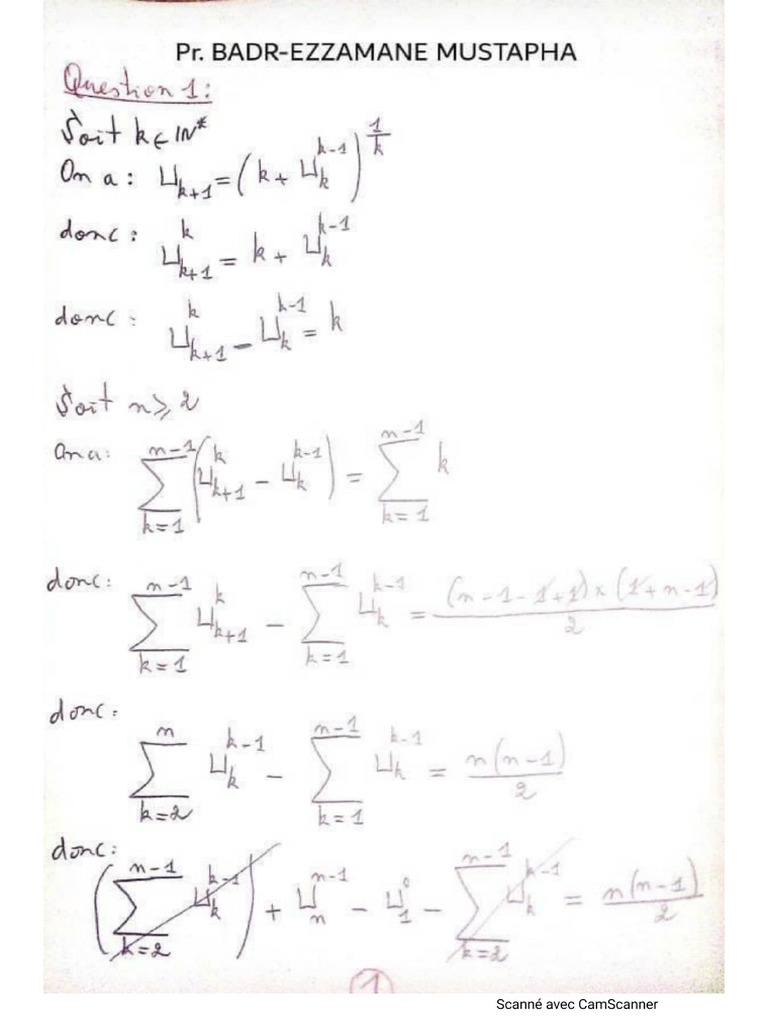 Pr. BADR-EZZAMANE MUSTAPHA
Question 1:
Soit k ∈ IN*
On a : U_{k+1} = (k + U_k^{k-1})^{1/k}
donc : U_{k+1}^k = k + U_k^{k-1}
donc : U_{k+1}^k - U_k^{k-1} = k
Soit n ⩾ 2
On a : ∑_{k=1}^{n-1} (U_{k+1}^k - U_k^{k-1}) = ∑_{k=1}^{n-1} k
donc : ∑_{k=1}^{n-1} U_{k+1}^k - ∑_{k=1}^{n-1} U_k^{k-1} = (n-1-1+1)×(1+n-1)/2
donc :
∑_{k=2}^{n} U_k^{k-1} - ∑_{k=1}^{n-1} U_k^{k-1} = n(n-1)/2
donc :
(∑_{k=2}^{n-1} U_k^{k-1}) + U_n^{n-1} - U_1^0 - ∑_{k=2}^{n-1} U_k^{k-1} = n(n-1)/2
1
Scanné avec CamScanner